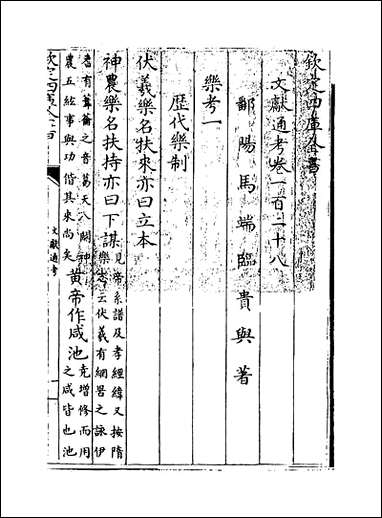 欽定四庫全書
文獻通考卷一百二十八
鄱陽馬端臨貴與著
樂考一
歷代樂制
伏羲樂名扶來亦曰立本
神農樂名扶持亦曰下謀見帝系譜及孝經緯又按隋樂志云伏羲有網罟之詠伊
耆有葦籥之音葛天八闋神農五絃事與功偕其來尚矣黃帝作咸池堯增修而用之咸皆也池
文獻通考